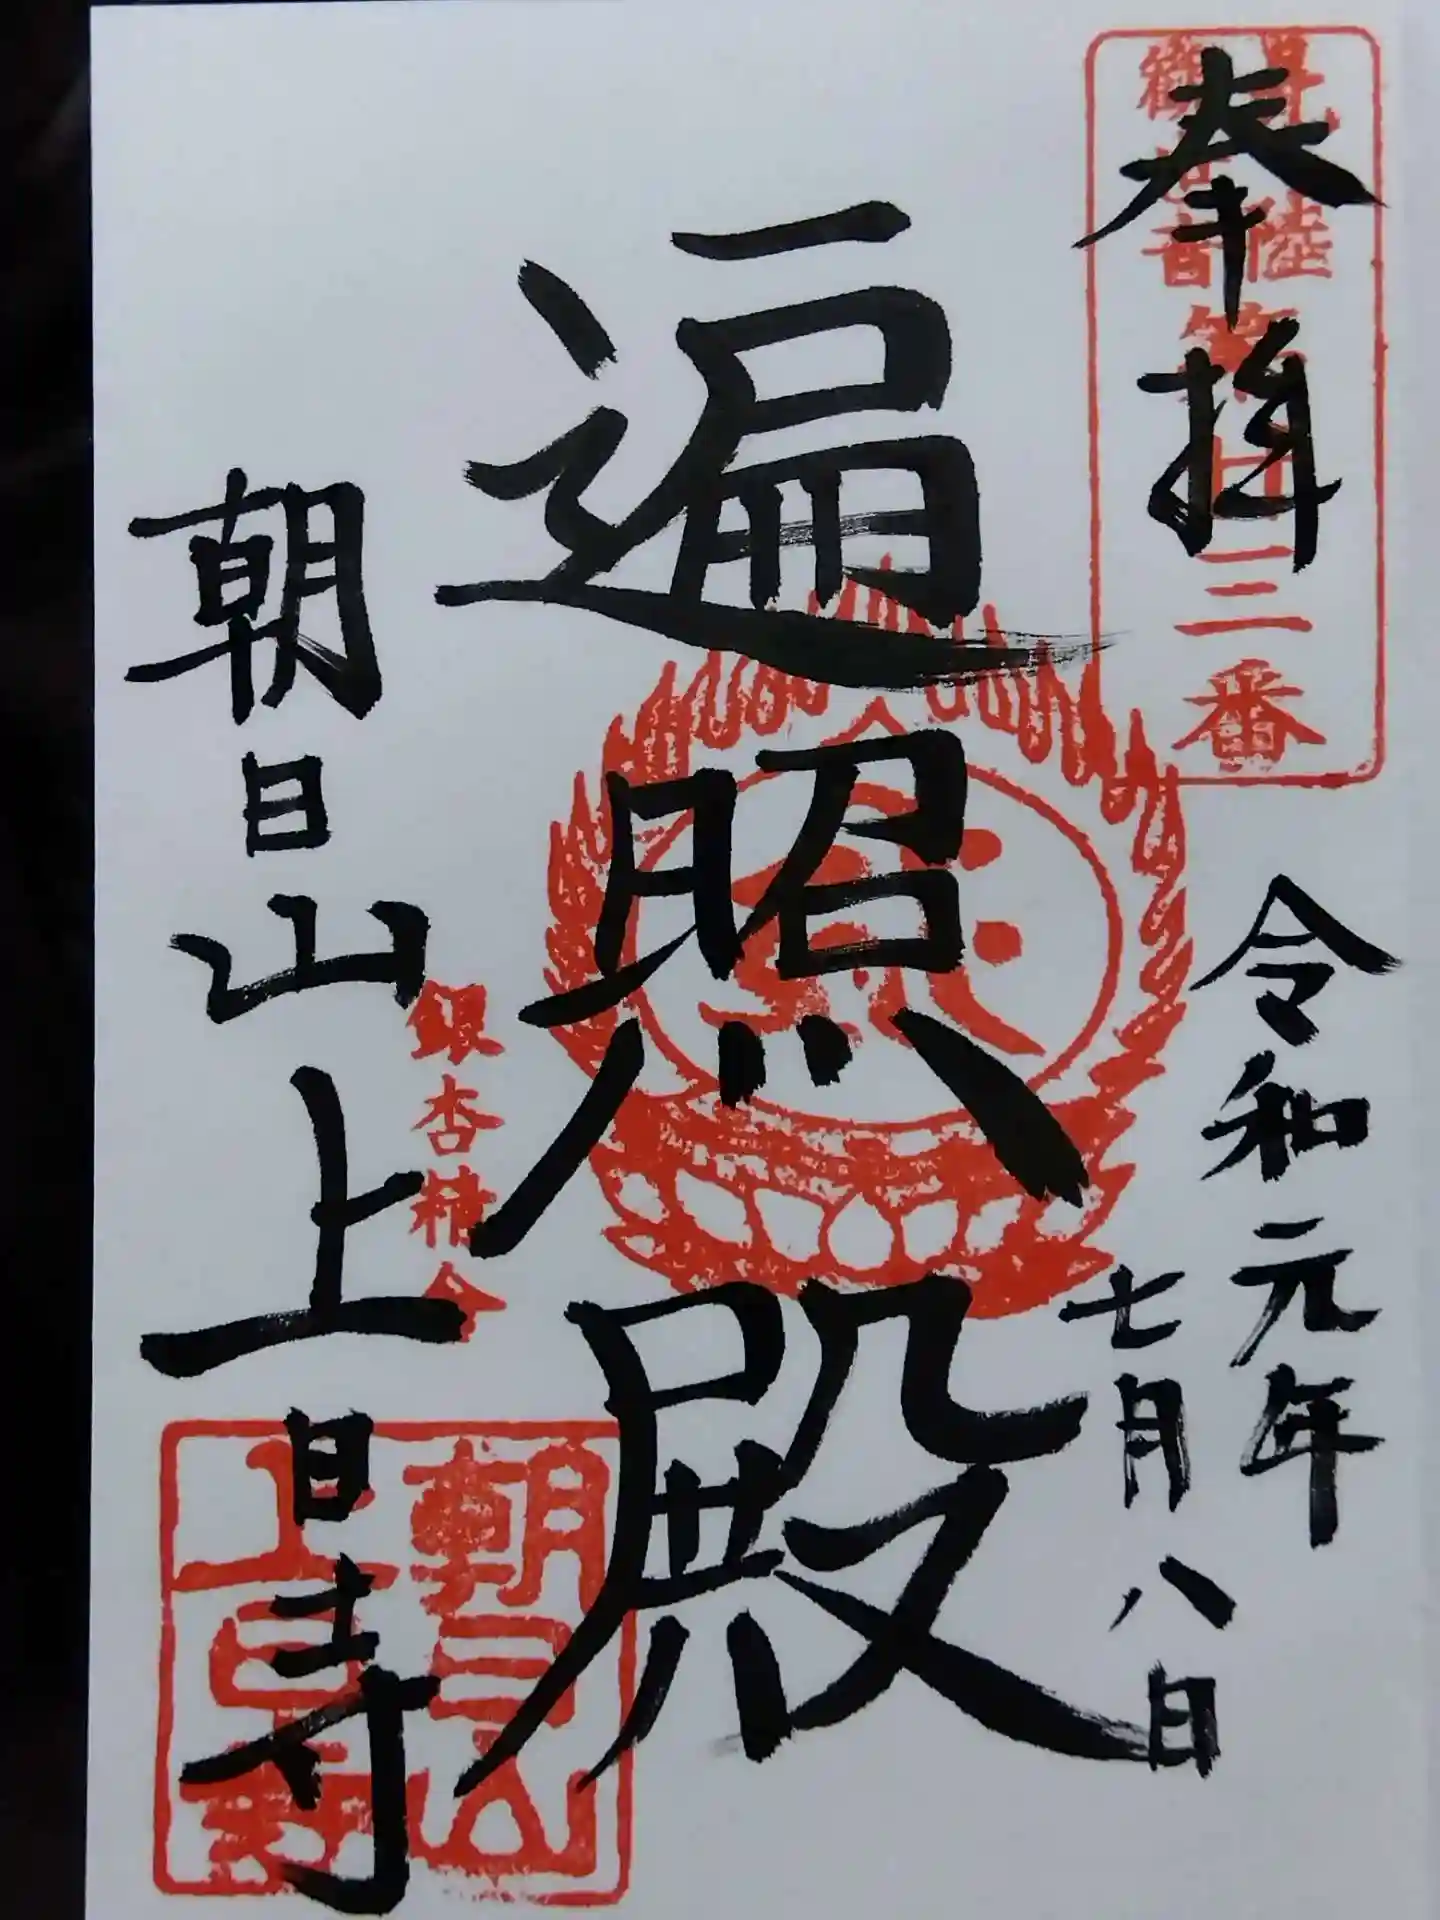 奉拝
陸
第廿三番
令和元年
七月八日
遍照殿
銀杏精舎
朝日山上日寺
朝日山
上日寺